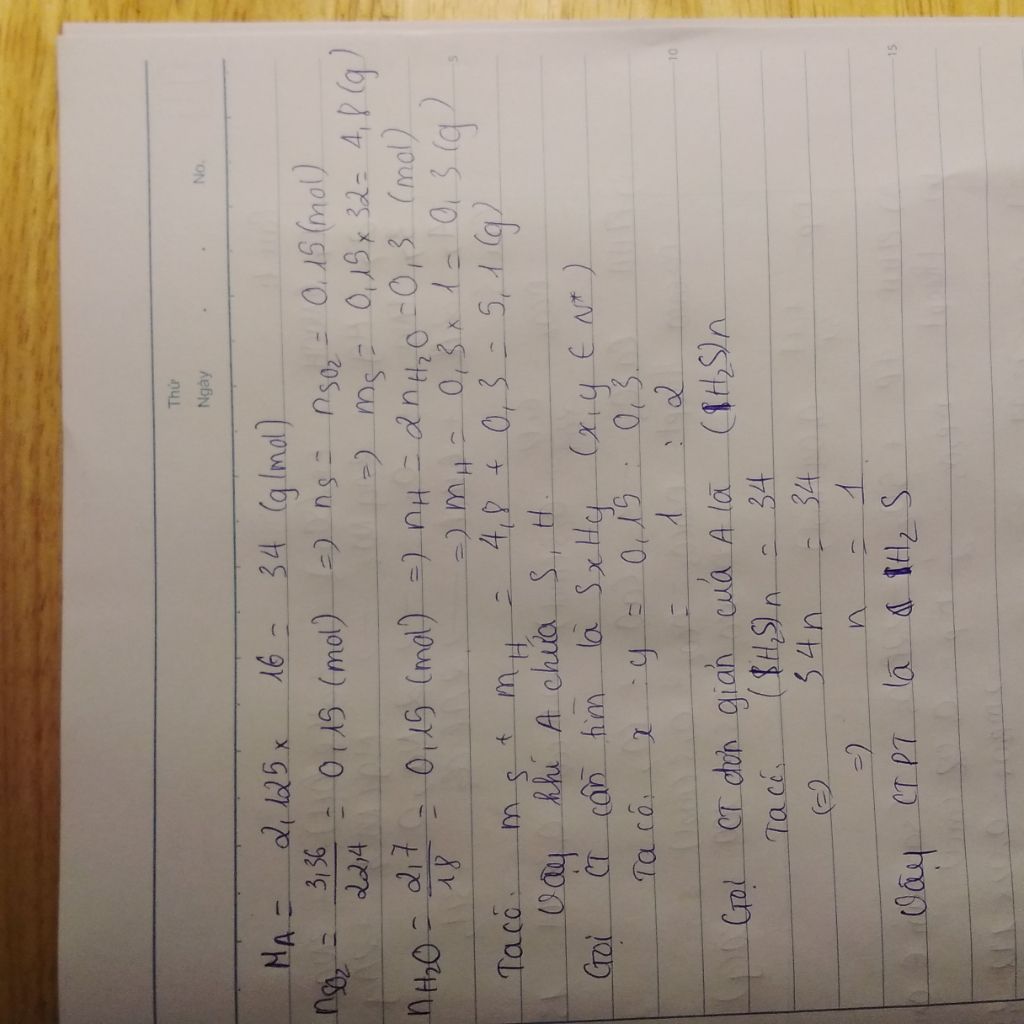 Thứ
Ngày . . No.
MA = 2,125 x 16 = 34 (g/mol)
nSO2 = 3,36/22,4 = 0,15 (mol) => nS = nSO2 = 0,15 (mol)
=> mS = 0,15 x 32 = 4,8 (g)
nH2O = 2,7/18 = 0,15 (mol) => nH = 2nH2O = 0,3 (mol)
=> mH = 0,3 x 1 = 0,3 (g)
5
Ta có: mS + mH = 4,8 + 0,3 = 5,1 (g)
Vậy khí A chứa S, H.
Gọi CT cần tìm là SxHy (x,y ∈ N*)
Ta có: x : y = 0,15 : 0,3
= 1 : 2
10
Gọi CT đơn giản của A là (H2S)n
Ta có: (H2S)n = 34
<=> 34n = 34
=> n = 1
Vậy CTPT là H2S
15